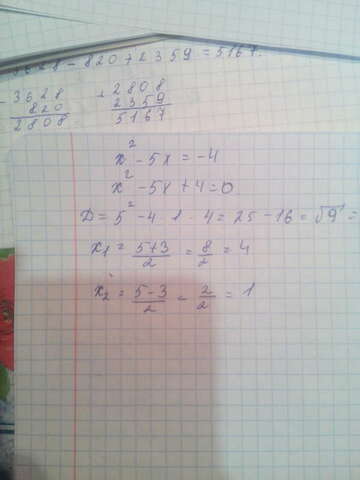 3628-820+2359=5167.
- 3628 + 2808
820 2359
2808 5167
x²-5x=-4
x²-5x+4=0
D=5²-4·1·4=25-16=√9=
x₁=(5+3)/2=8/2=4
x₂=(5-3)/2=2/2=1